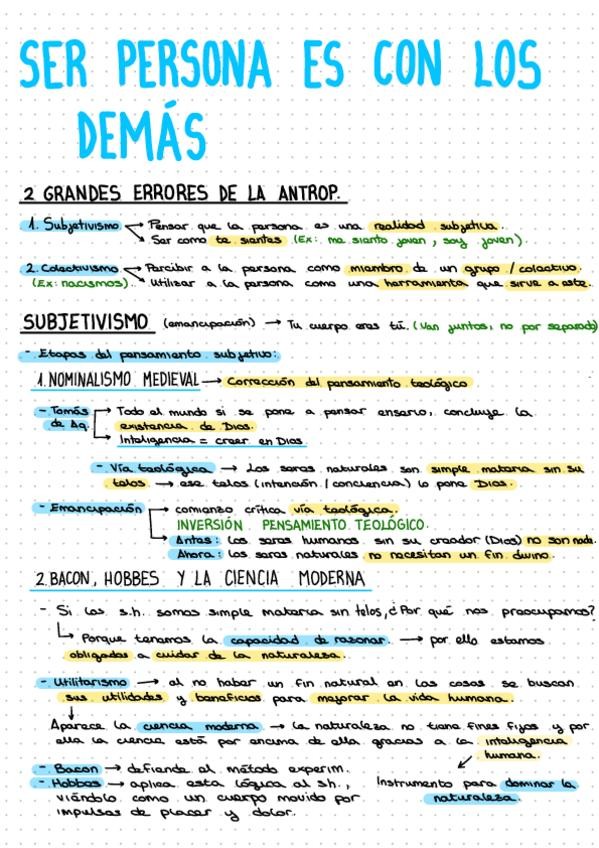 SER PERSONA ES CON LOS
DEMÁS
2 GRANDES ERRORES DE LA ANTROP.
1. Subjetivismo → Pensar que la persona es una realidad subjetiva.
→ Ser como te sientes (Ex: me siento joven, soy joven).
2. Colectivismo → Percibir a la persona como miembro de un grupo / colectivo.
(Ex: nacismos). → Utilizar a la persona como una herramienta que sirve a este.
SUBJETIVISMO (emancipación) → Tu cuerpo eres tú. (Van juntos, no por separado)
- Etapas del pensamiento subjetivo:
1. NOMINALISMO MEDIEVAL → Corrección del pensamiento teológico
- Tomás → Todo el mundo si se pone a pensar enserio, concluye la
de Aq. existencia de Dios.
→ Inteligencia = creer en Dios
- Vía teológica → Los seres naturales son simple materia sin su
telos → ese telos (intención / conciencia) lo pone Dios.
- Emancipación → comienzo crítica vía teológica.
INVERSIÓN PENSAMIENTO TEOLÓGICO.
→ Antes: los seres humanos sin su creador (Dios) no son nada.
→ Ahora: los seres naturales no necesitan un fin divino.
2. BACON, HOBBES Y LA CIENCIA MODERNA
- Si los s.h. somos simple materia sin telos, ¿Por qué nos preocupamos?
↳ Porque tenemos la capacidad de razonar. → por ello estamos
obligados a cuidar de la naturaleza.
- Utilitarismo → al no haber un fin natural en las cosas se buscan
sus utilidades y beneficios para mejorar la vida humana.
↓
Aparece la ciencia moderna → la naturaleza no tiene fines fijos y por
ella la ciencia está por encima de ella gracias a la inteligencia
humana.
- Bacon → defiende el método experim.
- Hobbes → aplica esta lógica al s.h.,
viéndolo como un cuerpo movido por
impulsos de placer y dolor.
Instrumento para dominar la
naturaleza.